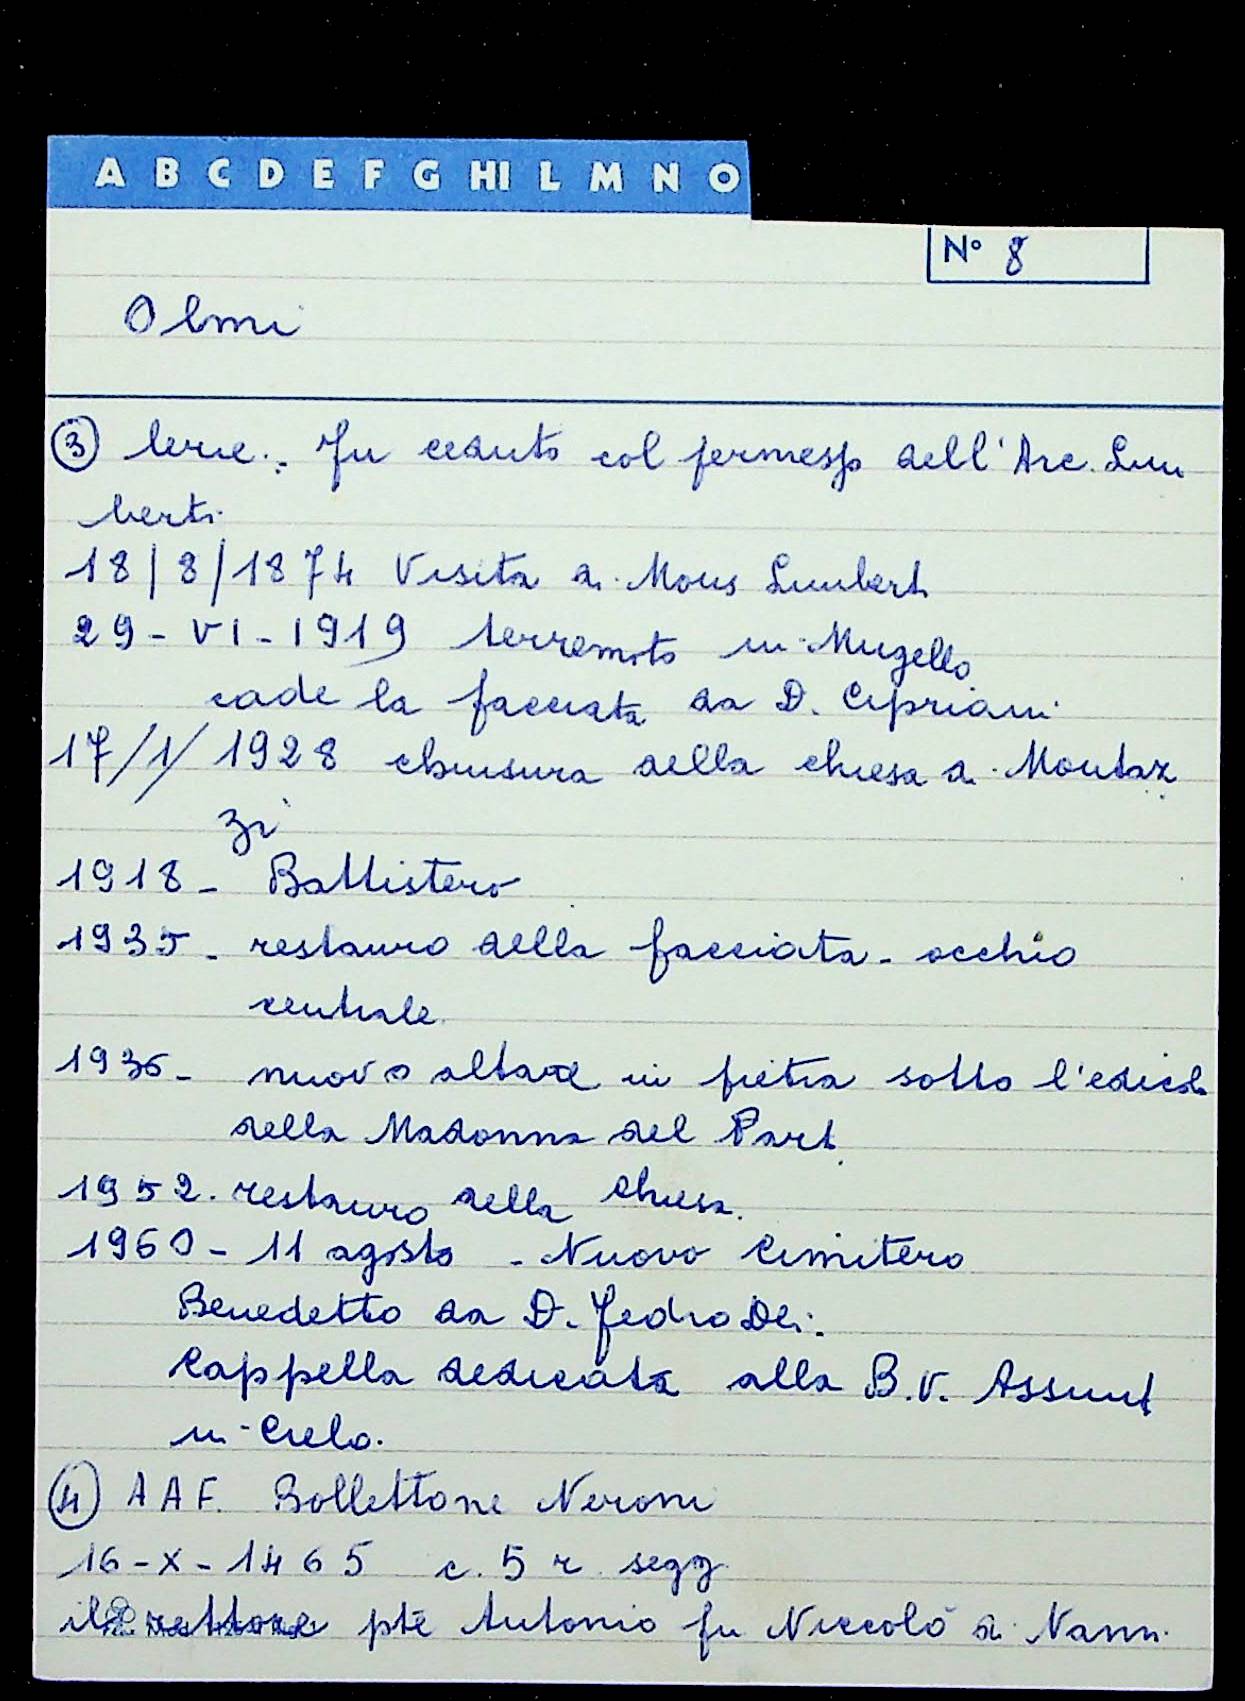 A B C D E F G HI L M N O
N° 8
Olmi
③ lerie. Fu ceduto col permesso dell'Arc. Lim
berti
18/8/1874 Visita di Mons Limberti
29-VI-1919 terremoto in Mugello
cade la facciata da D. Cipriani
17/1/1928 chiusura della chiesa di Montaz
zi
1918- Battistero
1935- restauro della facciata- occhio
centrale.
1936- nuovo altare in pietra sotto l'edicola
della Madonna del Part.
1952. restauro della chiesa.
1960- 11 agosto - Nuovo Cimitero
Benedetto da D. Fedro Dei.
Cappella dedicata alla B.V. Assunt
in Cielo.
④ AAF. Bollettone Neroni
16-X-1465 c. 5 r. segg
il rettore pte Antonio fu Niccolò di Nanni